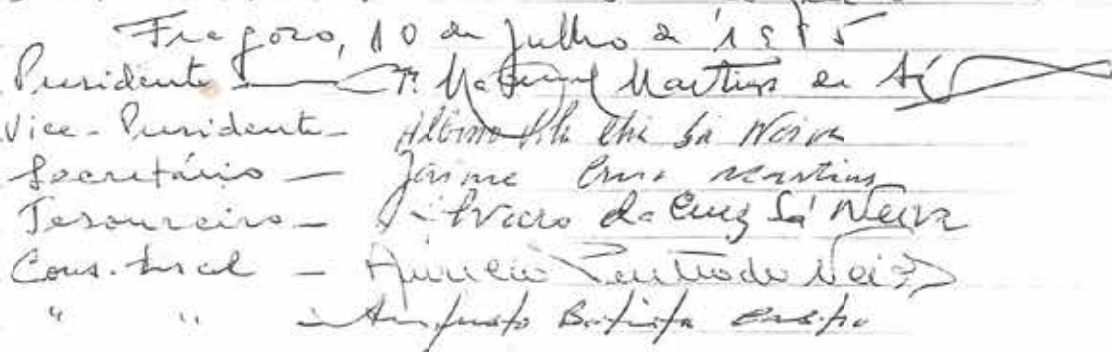 Fragoso, 10 de Julho de 1985
Presidente — P. Manuel Martins de Sá
Vice-Presidente — Albino Sá Neiva
Secretário — Jaime Cruz Martins
Tesoureiro — Álvaro da Cruz Sá Neiva
Cons. Fiscal — Aurélio Neiva
" " — Augusto Batista